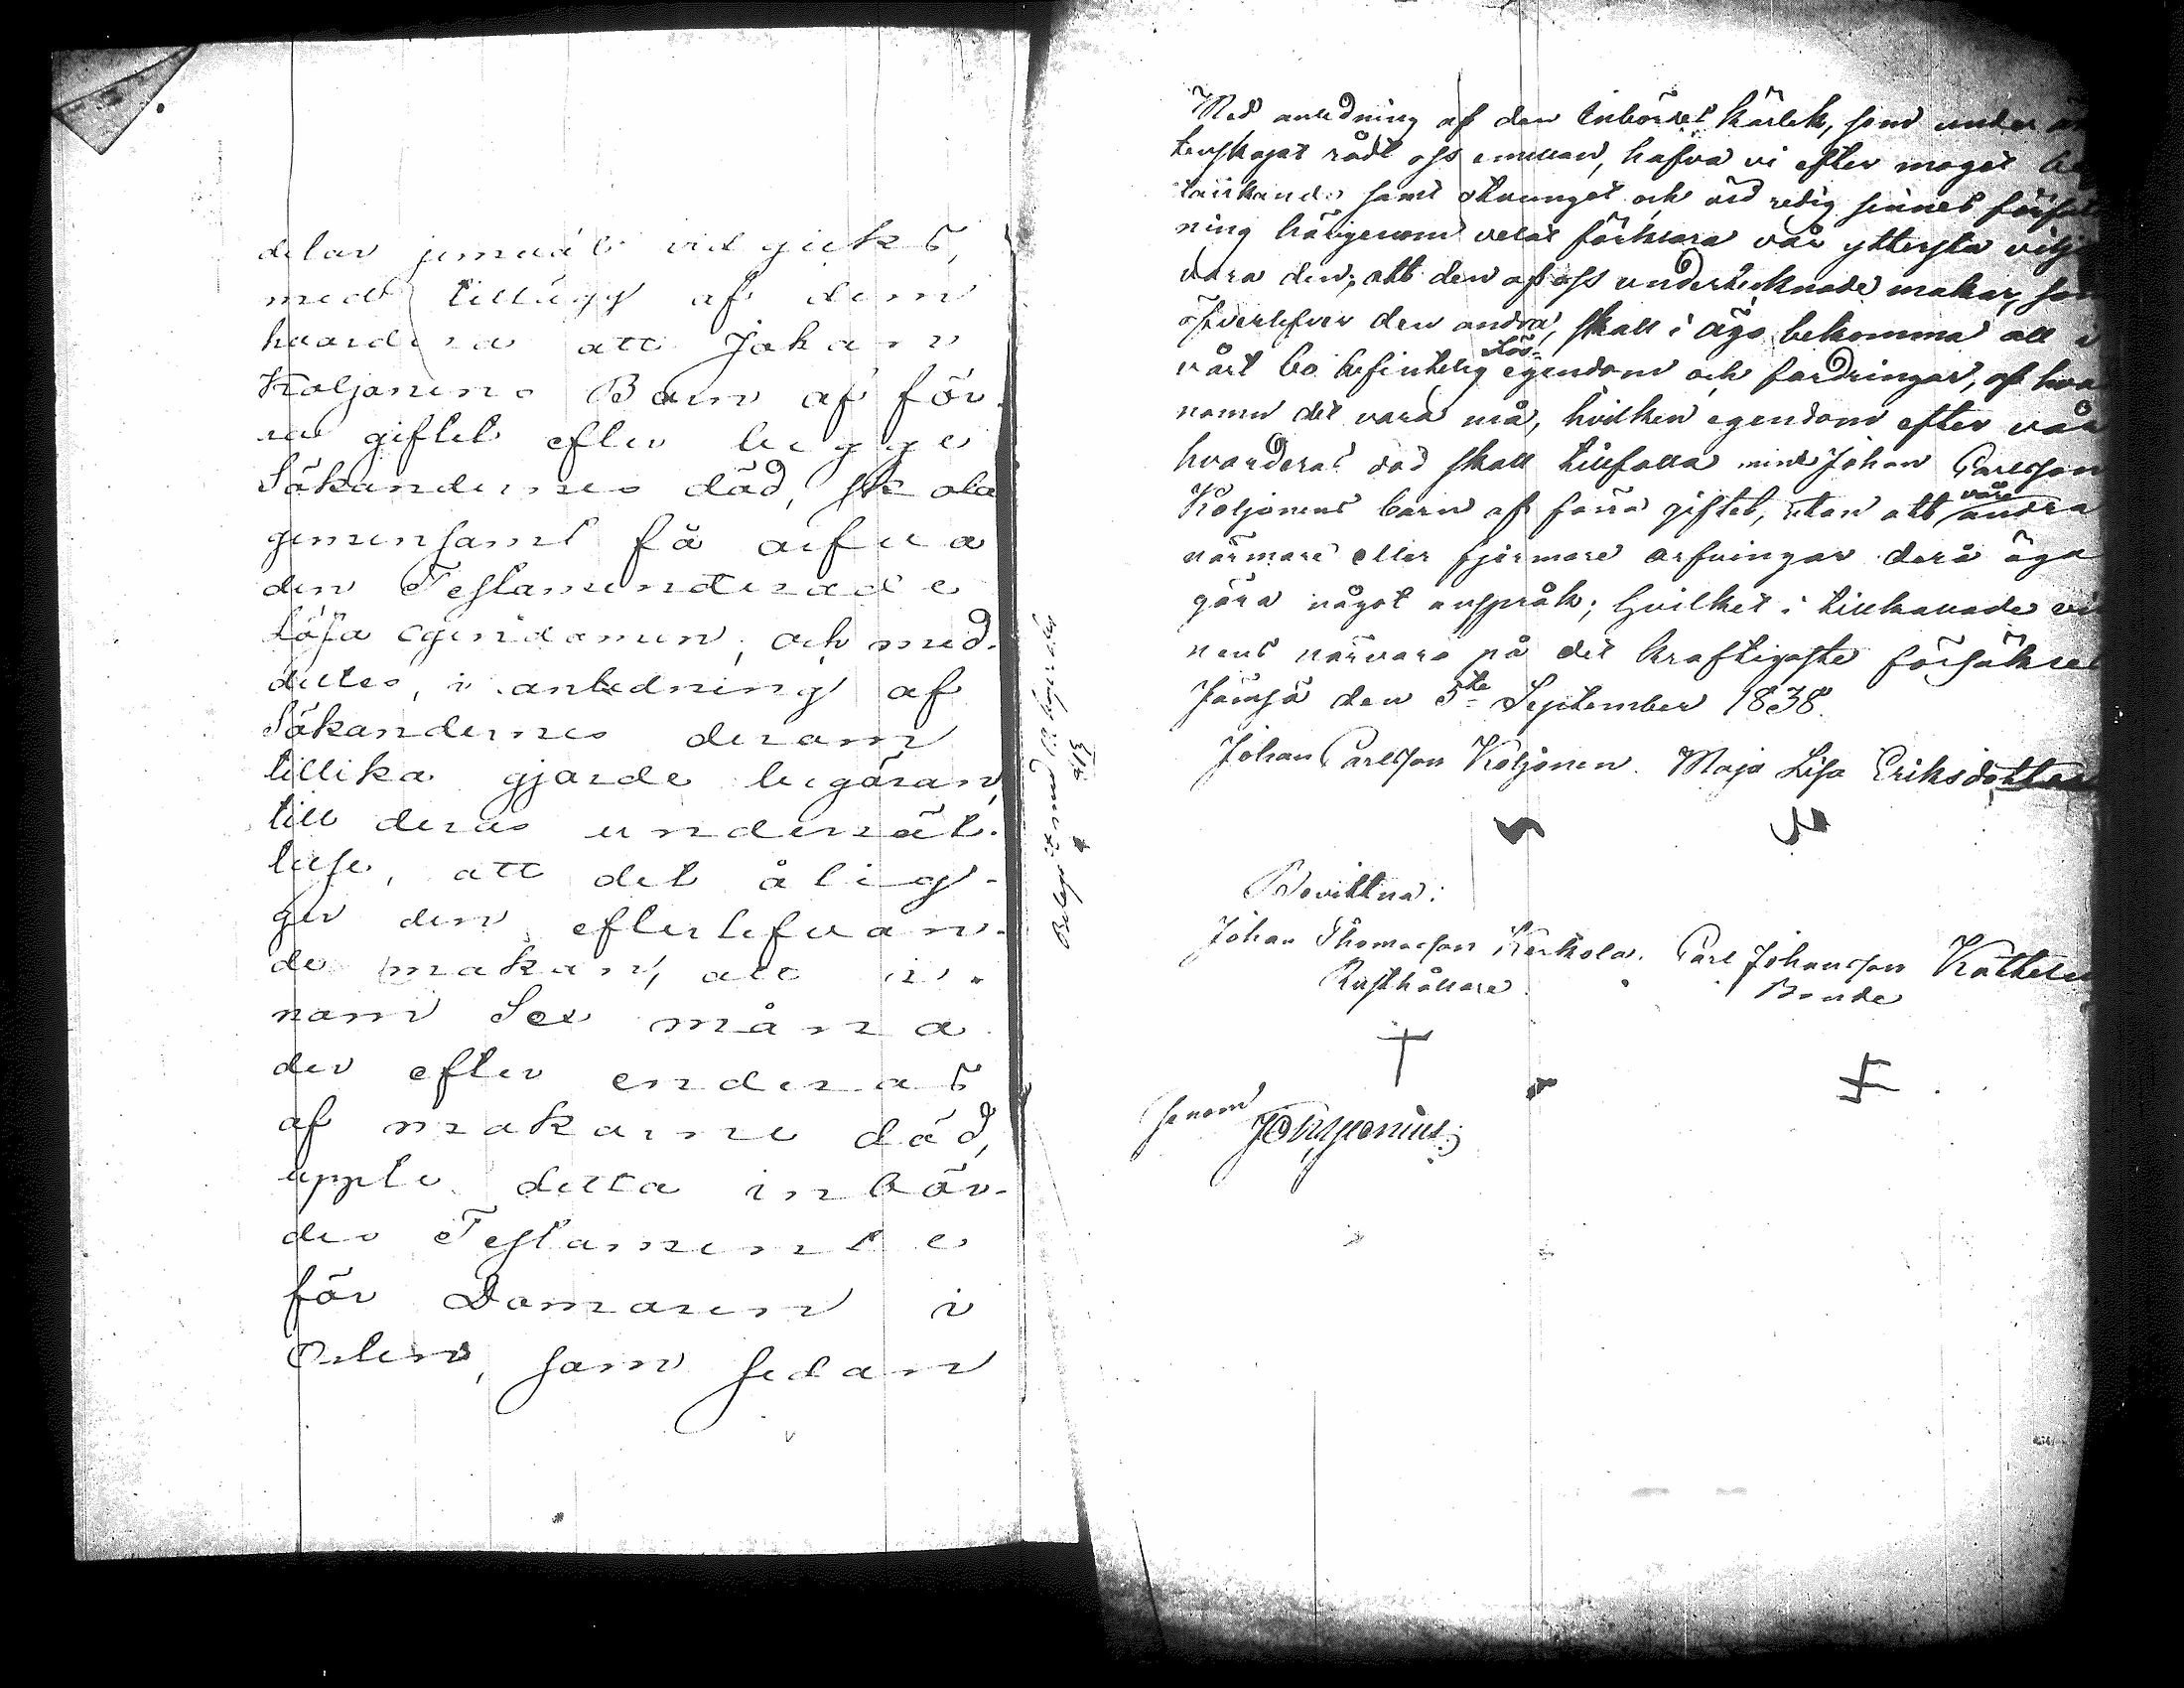 delar jemväl vidgicks,
med tillägg af dem
hvardera att Johan
Koljonens Barn af för-
ra giftet efter begge
Sökandernes död, skola
gemensamt få ärfva
den Testamenterade
lösa egendomen, och med-
deltes, i anledning af
Sökandernes derom
tillika gjorde begäran,
till deras underrät-
telse, att det ålig-
ger den efterlefvan-
de makan, att in-
nom Sex måna
der efter enderas
af makarne död,
uppte detta inbör-
des Testamente
för Domaren i
Orten, som sedan
Med anledning af den inbördes kärlek, som under
tenskapet rådt oss emellan, hafva vi efter moget
tänkande samt otvunget och vid redig sinnes författ
ning härigenom velat förklara vår yttersta vilja
vara den, att den af oss undertecknade makar, som
öfverlefver den andra, skall i ägo bekomma all i
vårt bo befintelig lös- egendom och fordringar, af hva
namn det vara må, hvilken egendom efter vår
hvarderas död skall tillfalla mine Johan Carlsson
Koljonens barn af förra giftet, utan att våre andra
närmare eller fjärmare arfvingar derå äga
göra något anspråk; Hvilket i tillkallade vit
nens närvaro på det kraftigaste försäkras
Jämsä den 5te September 1838.
Johan Carlsson Koljonen. Maja Lisa Eriksdotter
Bevittna:
Johan Thomasson Kerkola. Carl Johansson
Rusthållare. Bonde
genom